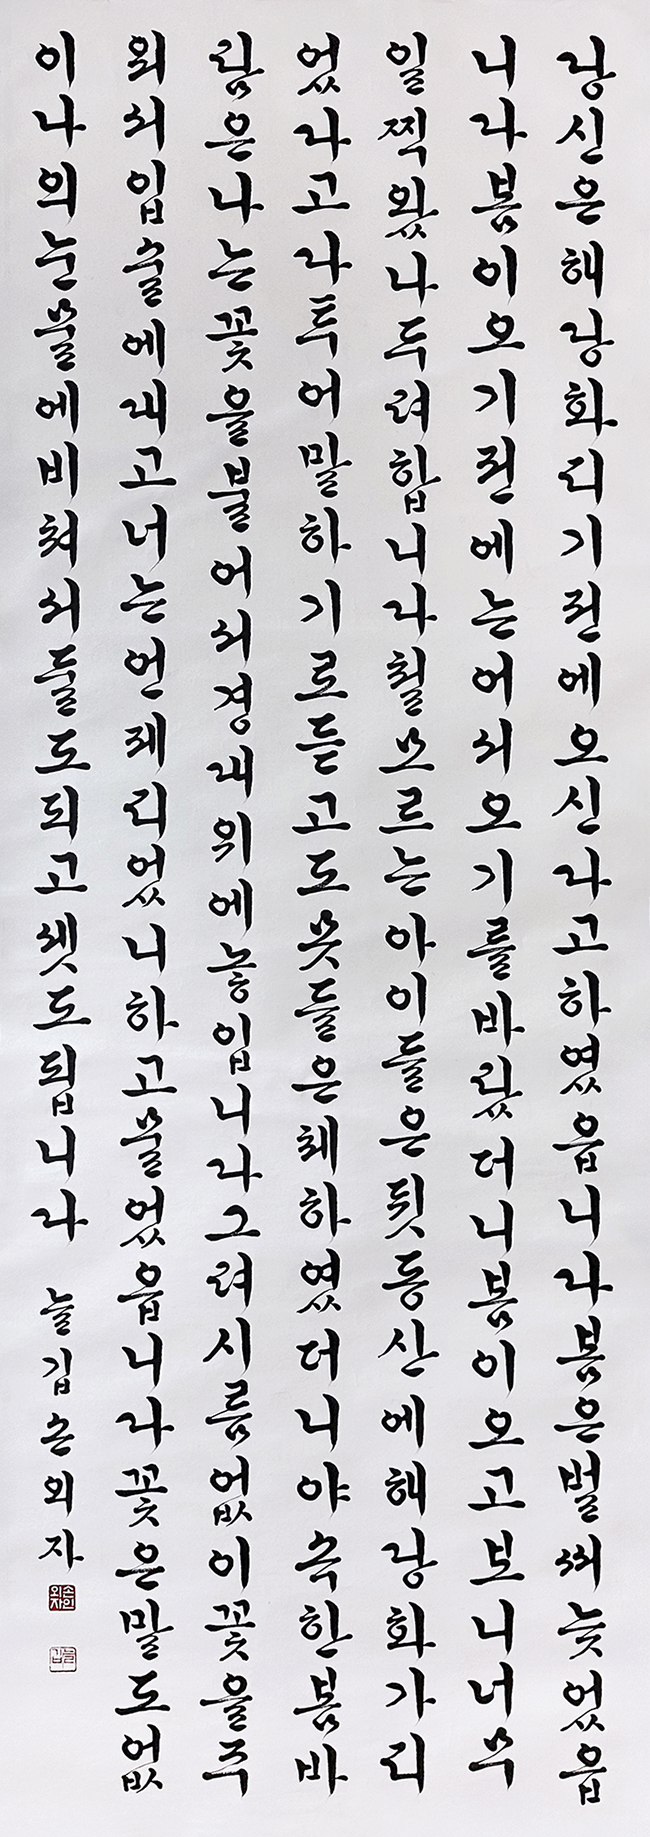 당신은해당화피기전에오신다고하였읍니다봄은벌써늦었읍
니다봄이오기전에는어서오기를바랐더니봄이오고보니너무
일찍왔나두려합니다철모르는아이들은뒷동산에해당화가피
었다고다투어말하기로듣고도못들은체하였더니야속한봄바
람은나는꽃을불어서경대위에놓입니다그려시름없이꽃을주
워서입술에대고너는언제피었니하고물었읍니다꽃은말도없
이나의눈물에비쳐서둘도되고셋도됩니다 늘깁손외자
손외자
늘깁